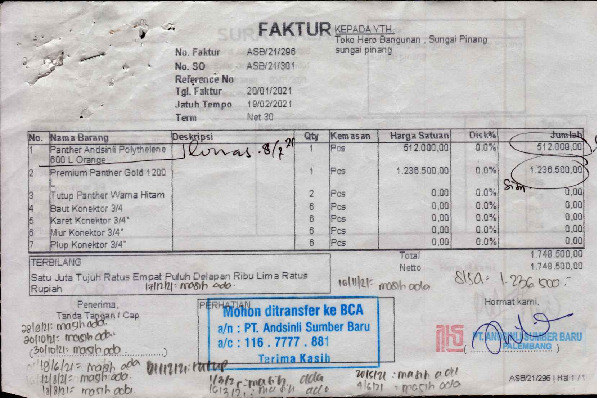 FAKTUR
KEPADA YTH.
Toko Hero Bangunan , Sungai Pinang
sungai pinang
No. Faktur ASB/21/296
No. SO ASB/21/301
Reference No
Tgl. Faktur 20/01/2021
Jatuh Tempo 19/02/2021
Term Net 30
No. Nama Barang Deskripsi Qty Kemasan Harga Satuan Disk% Jumlah
1 Panther Andsinli Polythelene 1 Pcs 512.000,00 0.0% 512.000,00
600 L Orange
lunas
2 Premium Panther Gold 1200 1 Pcs 1.236.500,00 0.0% 1.236.500,00
L
3 Tutup Panther Warna Hitam 2 Pcs 0,00 0.0% 0,00
4 Baut Konektor 3/4 6 Pcs 0,00 0.0% 0,00
5 Karet Konektor 3/4" 6 Pcs 0,00 0.0% 0,00
6 Mur Konektor 3/4" 6 Pcs 0,00 0.0% 0,00
7 Plup Konektor 3/4" 6 Pcs 0,00 0.0% 0,00
Total 1.748.500,00
Netto 1.748.500,00
TERBILANG
Satu Juta Tujuh Ratus Empat Puluh Delapan Ribu Lima Ratus
Rupiah
masih ada
16/11/21: masih ada
SISA = 1.236.500.-
Penerima,
Tanda Tangan / Cap
PERHATIAN
Mohon ditransfer ke BCA
a/n : PT. Andsinli Sumber Baru
a/c : 116 . 7777 . 881
Terima Kasih
Hormat kami,
PT. ANDSINLI SUMBER BARU
PALEMBANG
masih ada.
masih ada.
masih ada
masih ada.
masih ada.
masih ada.
masih ada
masih ada
masih ada
ASB/21/296 | Hal 1 / 1